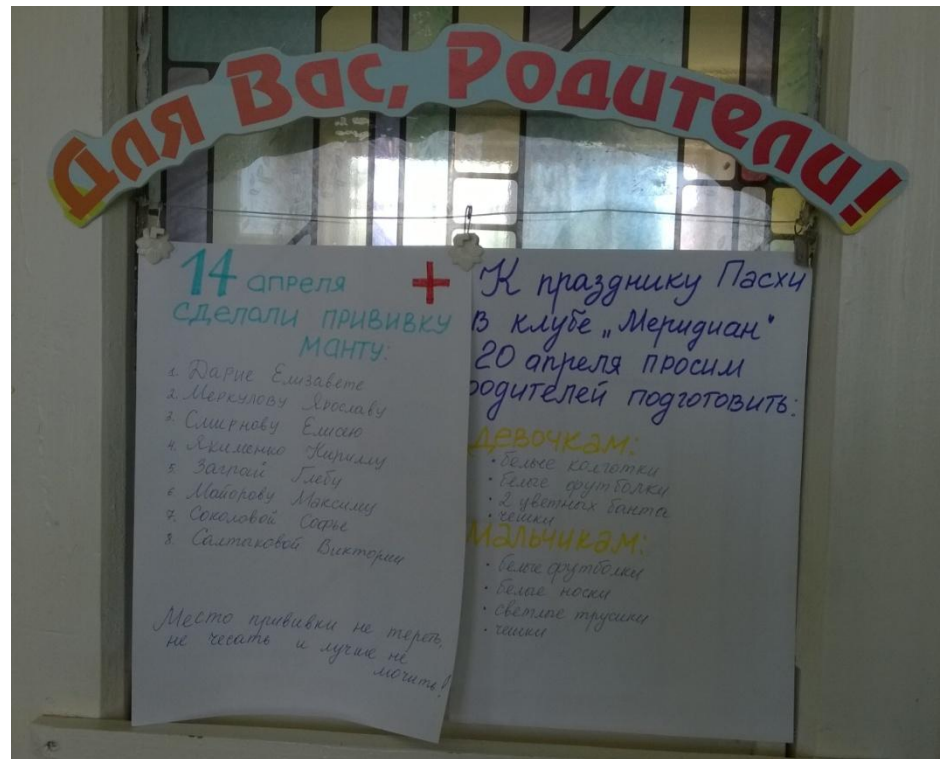 Для Вас, Родители!
14 апреля +
сделали прививку
манту:
1. Дарие Елизавете
2. Меркулову Ярославу
3. Смирнову Елисею
4. Якименко Кириллу
5. Заграй Глебу
6. Майорову Максиму
7. Соколовой Софье
8. Салтыковой Виктории
Место прививки не тереть,
не чесать и лучше не
мочить!
К празднику Пасхи
в клубе „Меридиан"
20 апреля просим
родителей подготовить:
Девочкам:
• белые колготки
• белые футболки
• 2 цветных банта
• чешки
Мальчикам:
• белые футболки
• белые носки
• светлые трусики
• чешки